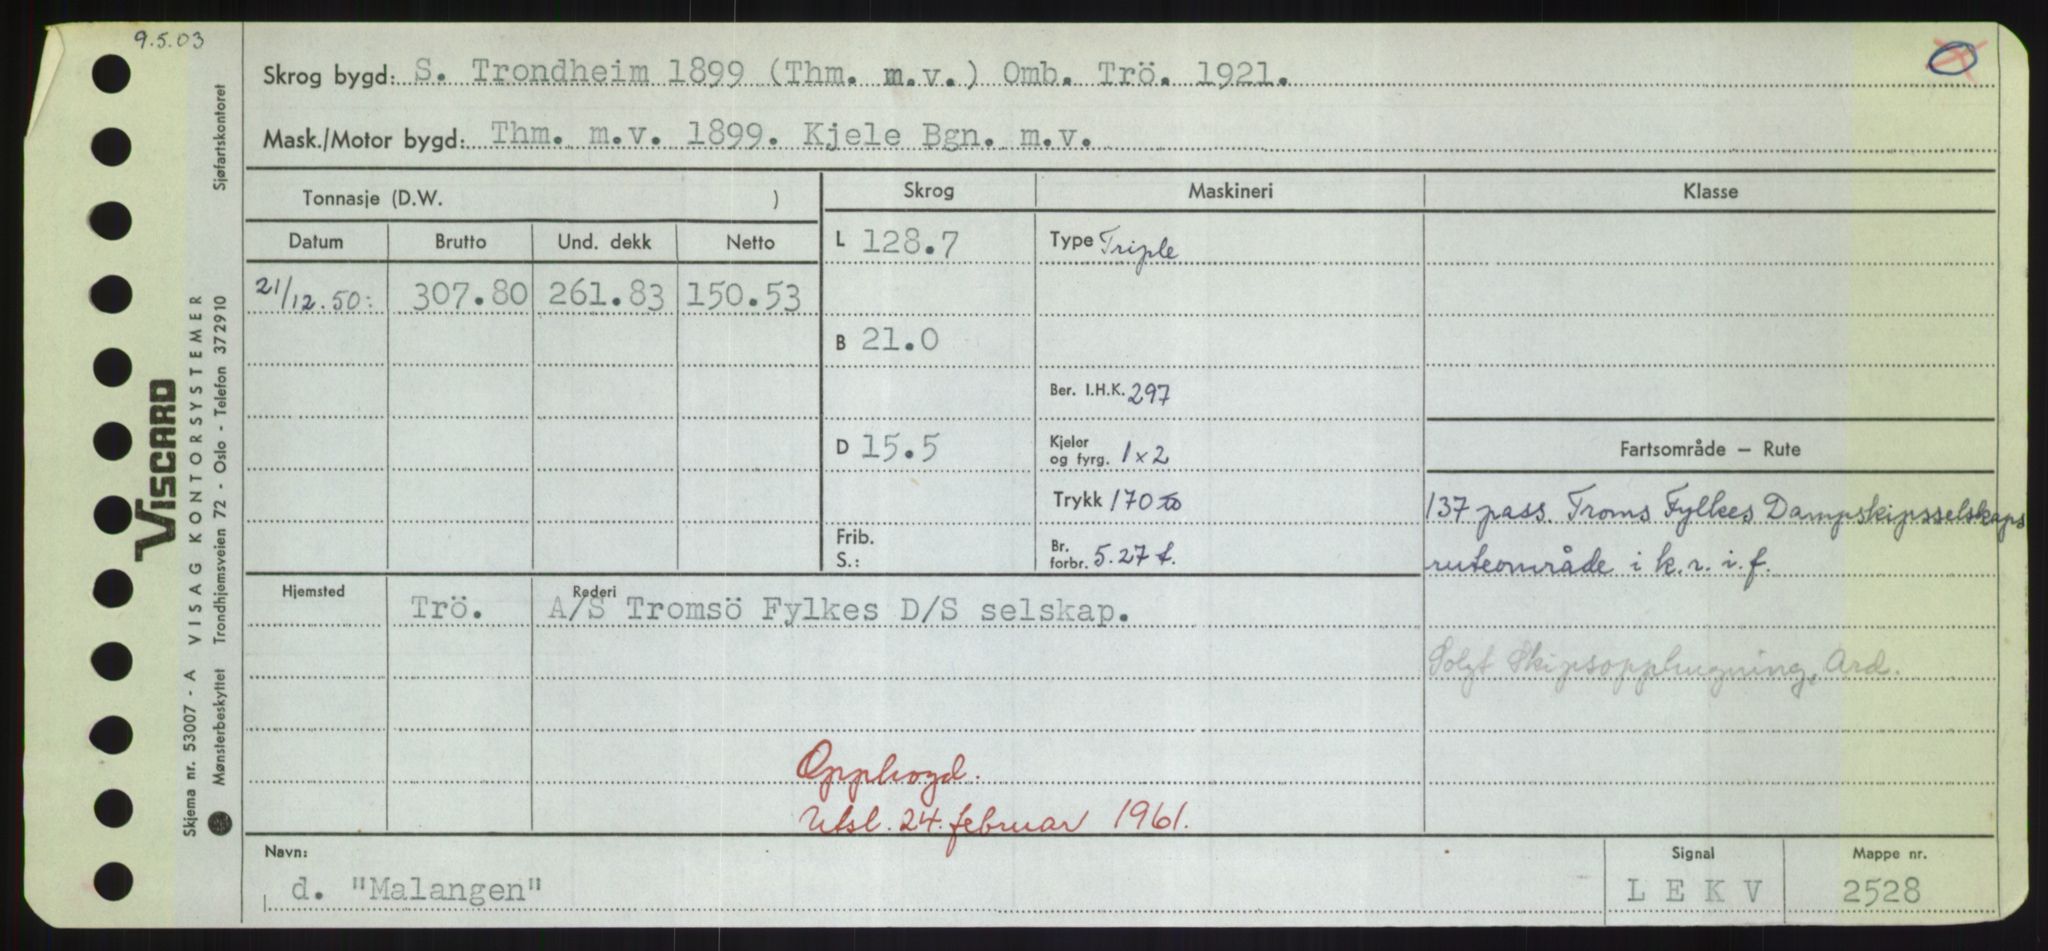 9.5.03
Skrog bygd: S. Trondheim 1899 (Thm. m.v.) Omb. Trö. 1921.
Mask./Motor bygd: Thm. m.v. 1899. Kjele Bgn. m.v.
Tonnasje (D.W. )
Skrog
Maskineri
Klasse
Datum
Brutto
Und. dekk
Netto
L 128.7
Type Triple
21/12.50:
307.80
261.83
150.53
B 21.0
Ber. I.H.K. 297
D 15.5
Kjeler
og fyrg. 1 x 2
Fartsområde — Rute
Trykk 170
137 pass. Troms Fylkes Dampskipsselskaps
Frib.
S.:
Br.
forbr. 5.27 t.
ruteområde i k. r. i. f.
Hjemsted
Trö.
Rederi
A/S Tromsö Fylkes D/S selskap.
Solgt Skipsopphugning, Ard.
Opphogd.
Utsl. 24. februar 1961.
Navn:
d. "Malangen"
Signal
L E K V
Mappe nr.
2528
VISCARD
Skjema nr. 53007 - A VISAG KONTORSYSTEMER
Mønsterbeskyttet Trondhjemsveien 72 - Oslo - Telefon 372910 Sjøfartskontoret